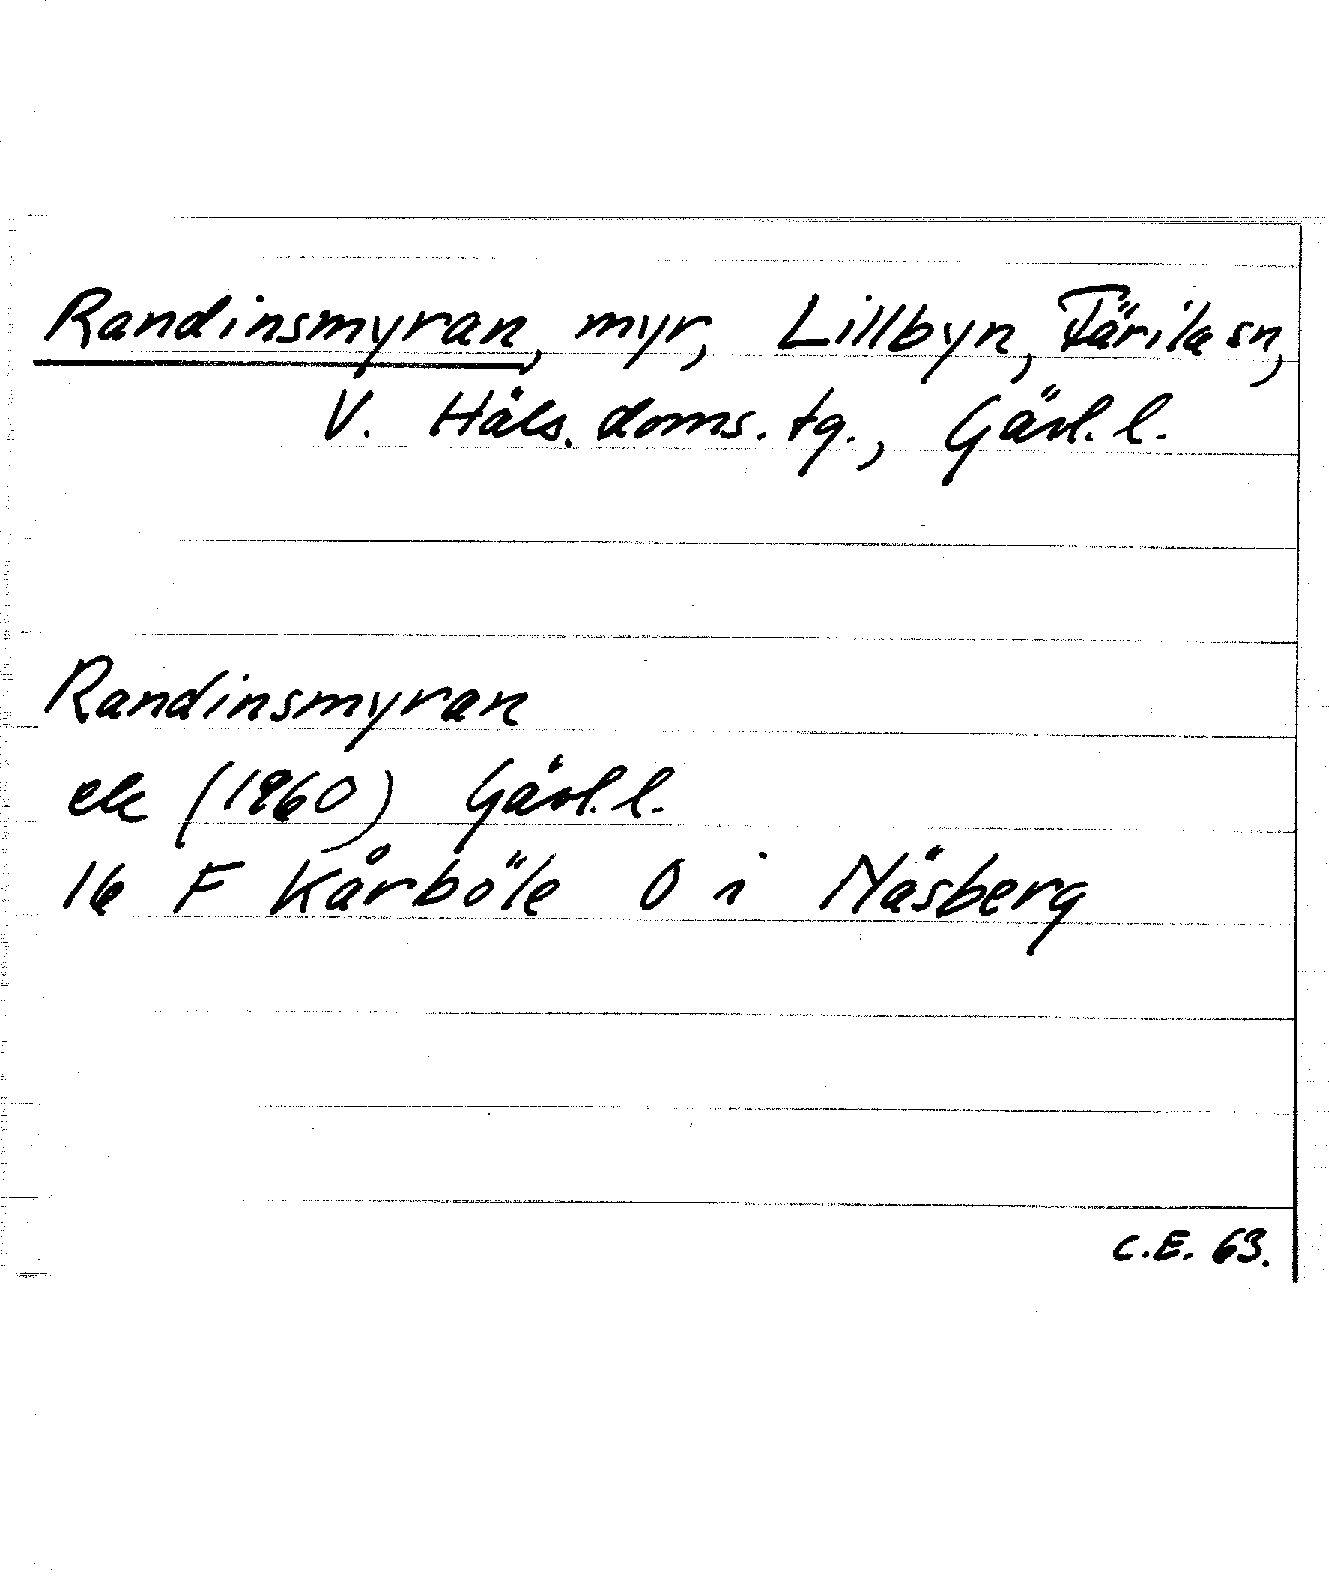 Randinsmyran, myr, Lillbyn, Färila sn,
V. Häls. doms. tg., Gävl. l.
Randinsmyran
ek (1960) Gävl. l.
16 F Kårböle O i Näsberg
C.E. 63.